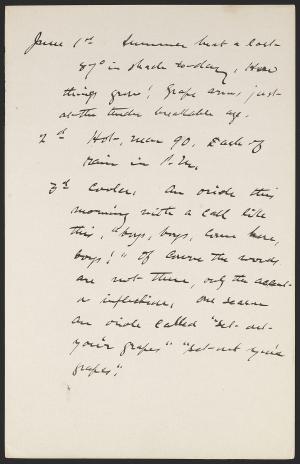 June 1st Summer heat at last
87° in shade to-day, How
things grow! Grape arms just
at the tender breakable age.
2d Hot, near 90. Dash of
rain in P.M.
3d Cooler, An oriole this
morning with a call like
this, "boys, boys, come here,
boys!" Of course the words
are not there, only the accent
or inflection, one season
an oriole called "Set-out-
your grapes" "Set-out your
grapes".